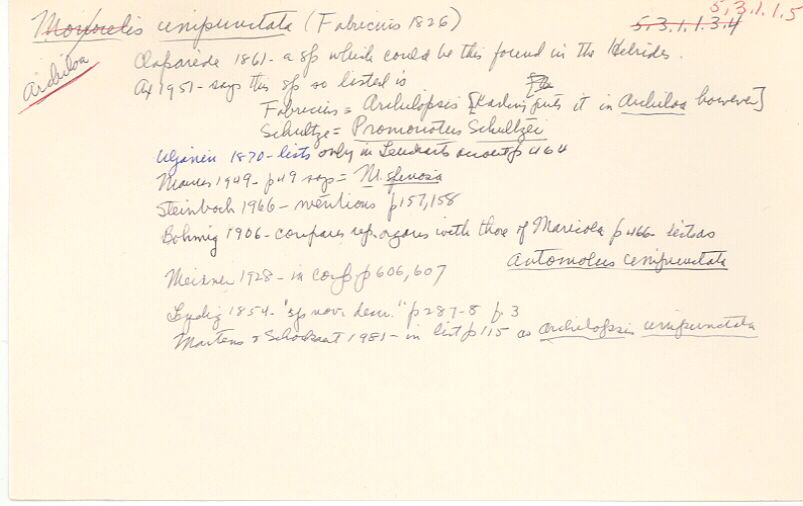 5,3.1.1.5
Monocelis unipunctata (Fabricius 1826) 5.3.1.1.3.4
Archiloa
Claparède 1861 - a sp which could be this found in the Hebrides.
Ax 1951 - says this sp so listed is
Fabricius = Archilopsis [Karling puts it in Archiloa however]
Schultze = Promonotus Schultzei
Uljanin 1870 - lists only in Leuckarts p 464
Marcus 1949 - p49 says = M. spinosa
Steinboch 1966 - mentions p157,158
Bohmig 1906 - compares rep. organs with those of Maricola p 466 - lists as
Automolus unipunctata
Meixner 1928 - in comp. p 606, 607
Leydig 1854 - "sp nov. desc." p 287-8 f. 3
Martens & Schockaert 1981 - in list p 115 as Archilopsis unipunctata